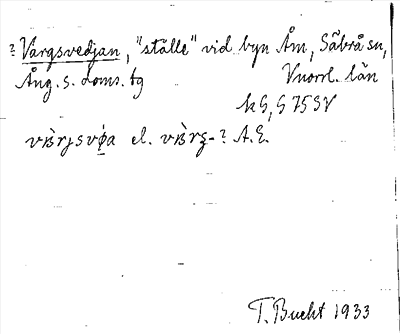 ? Vargsvedjan, "ställe" vid byn Åm, Säbrå sn,
Ång. s. doms. tg Vnorrl. län
k G, G 75 SV
el. ? A.E.
T. Bucht 1933